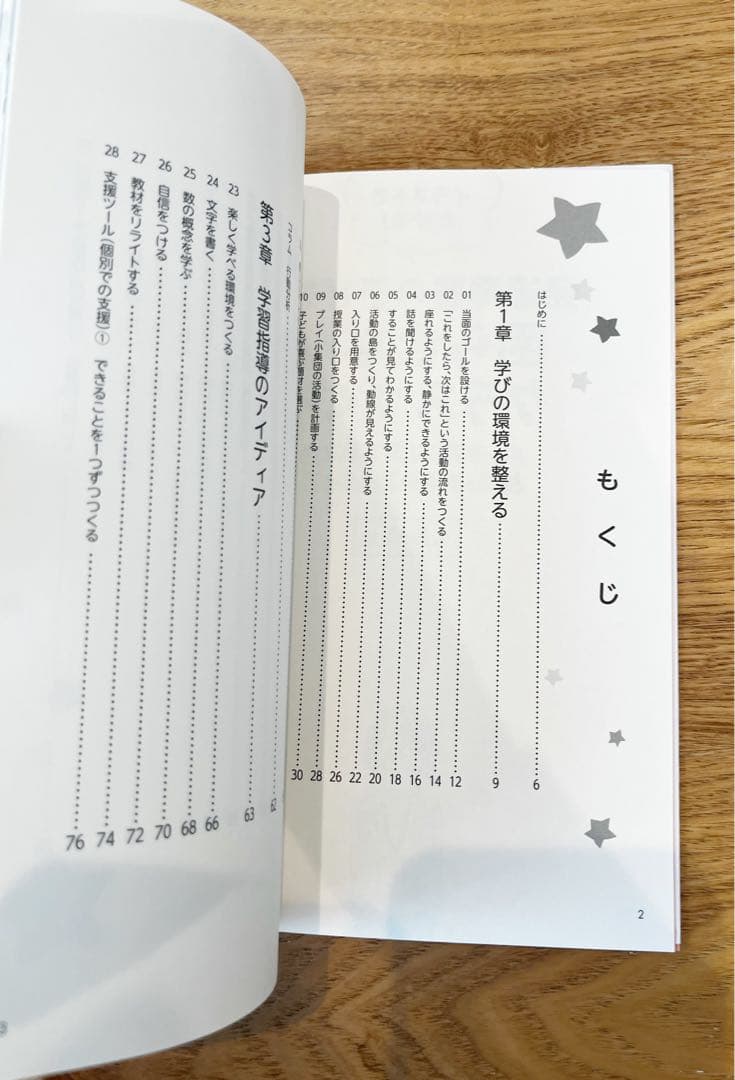 もくじ
はじめに 6
第1章 学びの環境を整える 9
01 当面のゴールを設ける 12
02 「これをしたら、次はこれ」という活動の流れをつくる 14
03 座れるようにする、静かにできるようにする 16
04 話を聞けるようにする 18
05 することが見てわかるようにする 20
06 活動の島をつくり、動線が見えるようにする 22
07 入り口を用意する 26
08 授業の入り口をつくる 28
09 プレイ(小集団の活動)を計画する 30
10 子どもが喜ぶ題材を選ぶ
2
62
第3章 学習指導のアイディア 63
23 楽しく学べる環境をつくる 66
24 文字を書く 68
25 数の概念を学ぶ 70
26 自信をつける 72
27 教材をリライトする 74
28 支援ツール(個別での支援)① できることを1つずつつくる 76